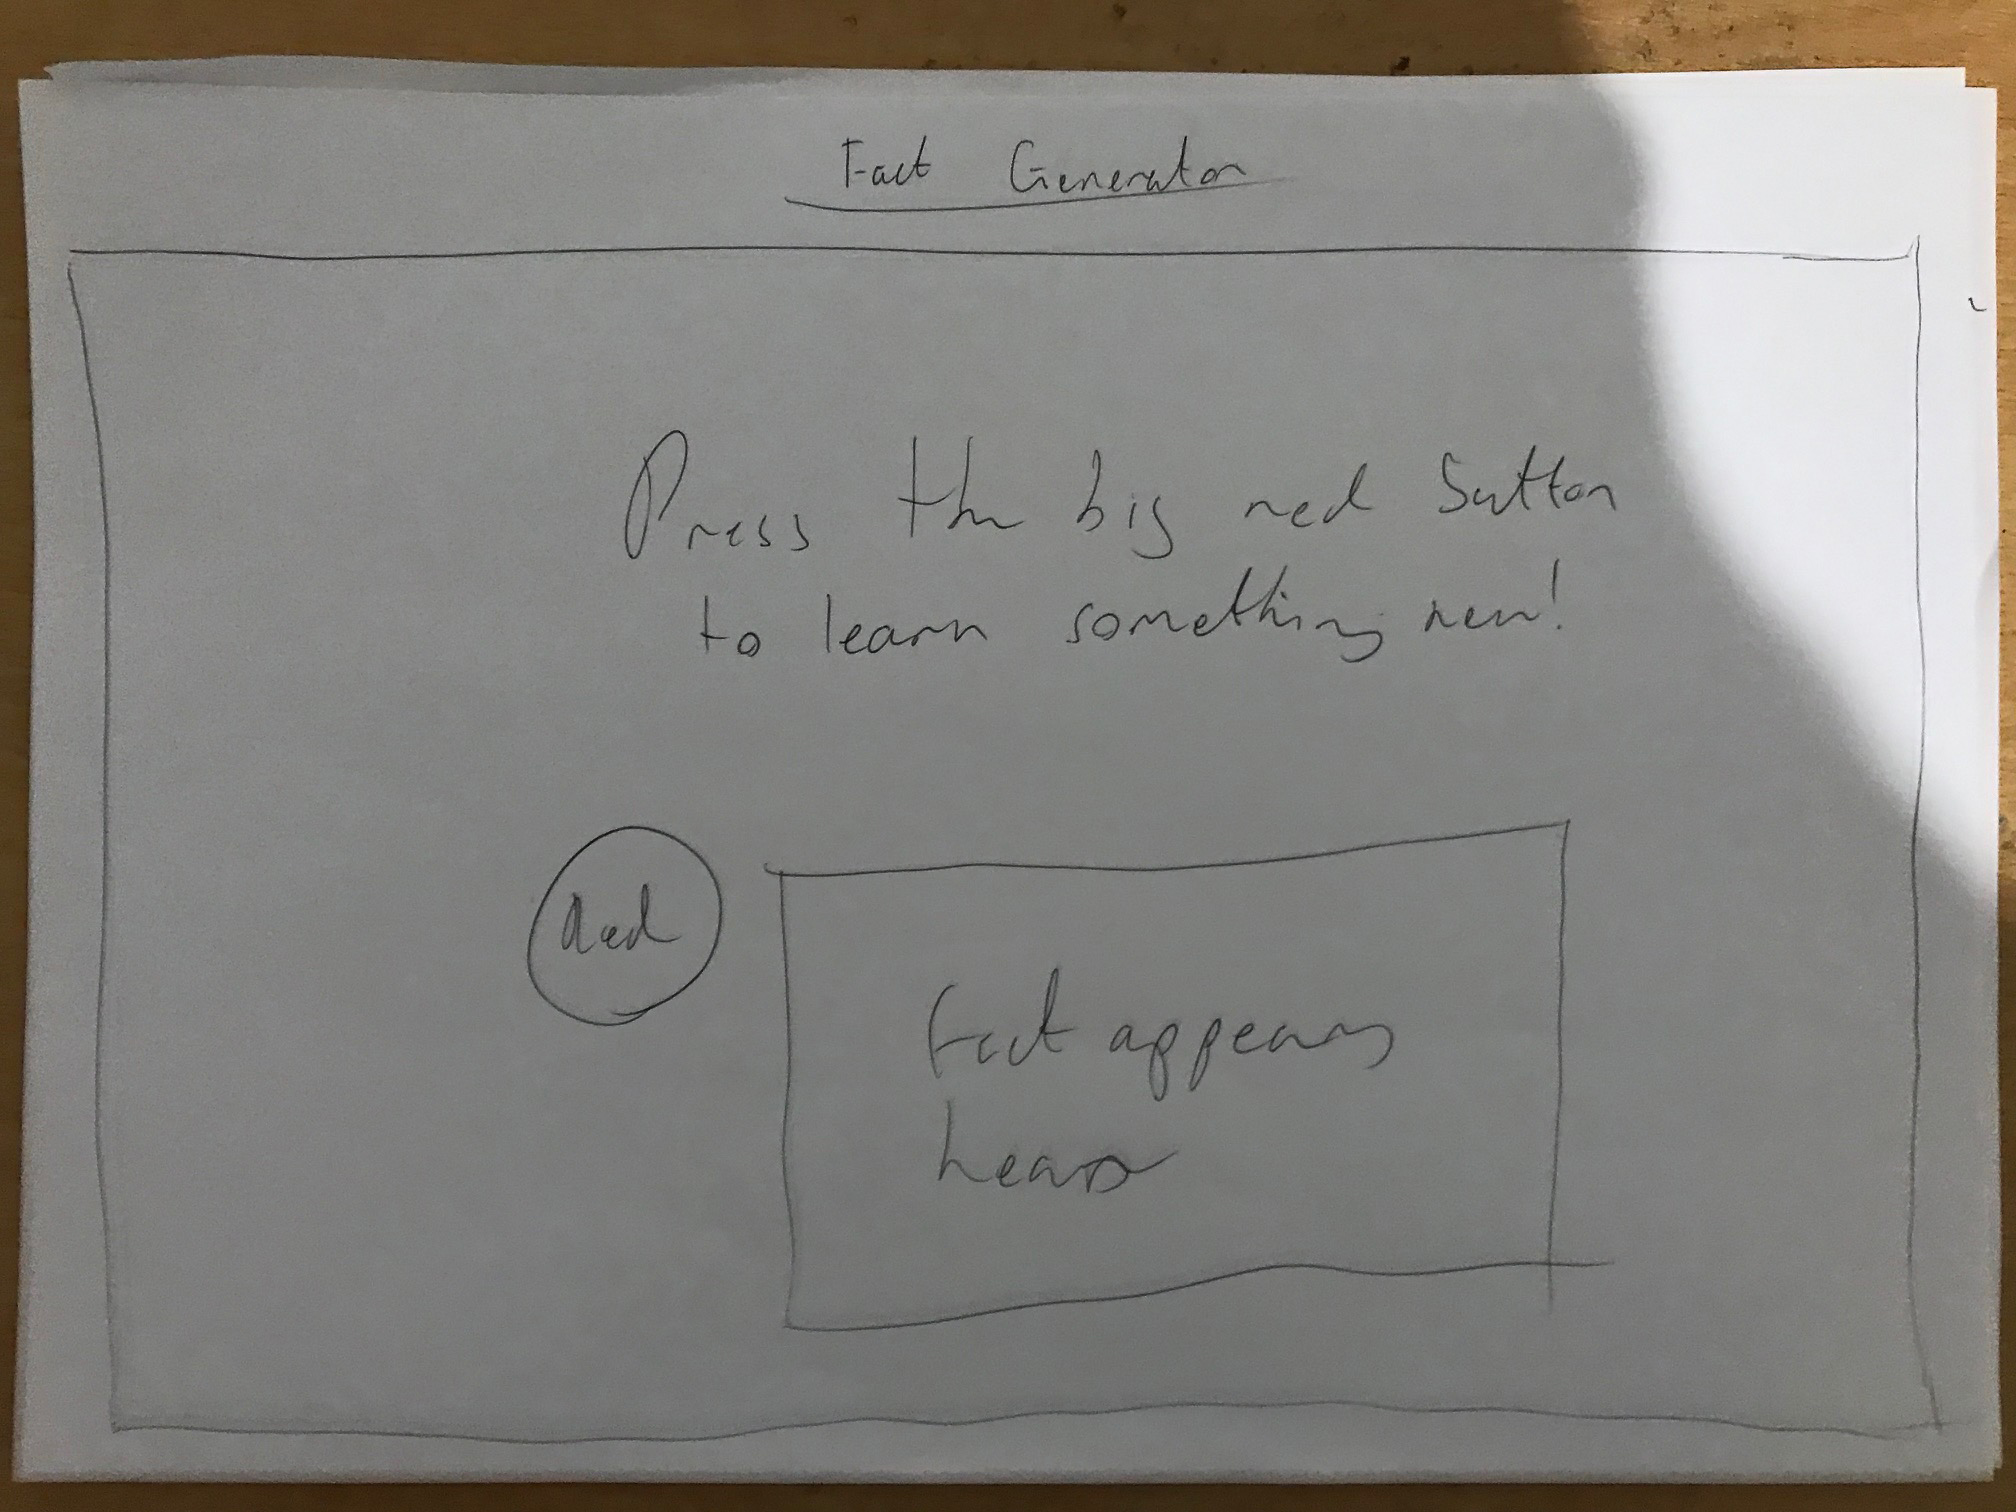 Fact Generator
Press the big red button
to learn something new!
Red
Fact appears